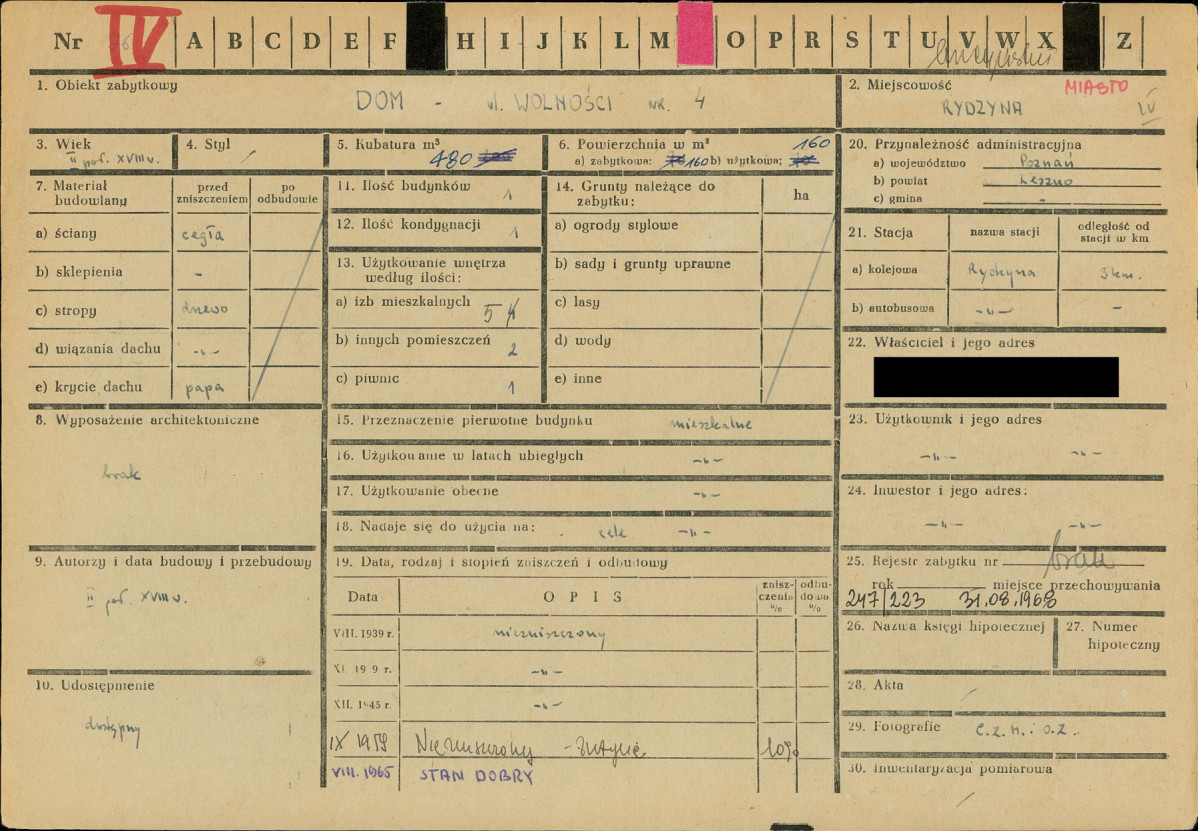 Nr IV A B C D E F H I J K L M O P R S T U V W X Z
1. Obiekt zabytkowy
DOM - ul. WOLNOŚCI NR. 4
2. Miejscowość MIASTO
RYDZYNA IV
3. Wiek
II poł. XVIII w.
4. Styl /
5. Kubatura m³
480
6. Powierzchnia w m² 160
a) zabytkowa: 160 b) użytkowa:
20. Przynależność administracyjna
a) województwo Poznań
b) powiat Leszno
c) gmina -
7. Materiał budowlany
przed zniszczeniem
po odbudowie
a) ściany cegła
b) sklepienia -
c) stropy drewo
d) wiązania dachu -"-
e) krycie dachu papa
11. Ilość budynków 1
12. Ilość kondygnacji 1
13. Użytkowanie wnętrza według ilości:
a) izb mieszkalnych 5
b) innych pomieszczeń 2
c) piwnic 1
14. Grunty należące do zabytku:
ha
a) ogrody stylowe
b) sady i grunty uprawne
c) lasy
d) wody
e) inne
21. Stacja
nazwa stacji
odległość od stacji w km
a) kolejowa Rydzyna 3 km.
b) autobusowa -"- -
22. Właściciel i jego adres
8. Wyposażenie architektoniczne
brak
15. Przeznaczenie pierwotne budynku mieszkalne
16. Użytkowanie w latach ubiegłych -"-
17. Użytkowanie obecne -"-
18. Nadaje się do użycia na: cele -"-
23. Użytkownik i jego adres
-"- -"-
24. Inwestor i jego adres:
-"- -"-
9. Autorzy i data budowy i przebudowy
II poł. XVIII w.
19. Data, rodzaj i stopień zniszczeń i odbudowy
Data
OPIS
zniszczenia %
odbudowa %
VIII. 1939 r. niezniszczony
XI. 19 9 r. -"-
XII. 1945 r. -"-
IX 1959 Niezniszczony - zużycie 10%
VIII. 1965 STAN DOBRY
25. Rejestr zabytku nr brak
rok miejsce przechowywania
247/223 31.08.1968
26. Nazwa księgi hipotecznej
27. Numer hipoteczny
10. Udostępnienie
dostępny
28. Akta /
29. Fotografie C.Z.N. i O.Z.
30. Inwentaryzacja pomiarowa
/